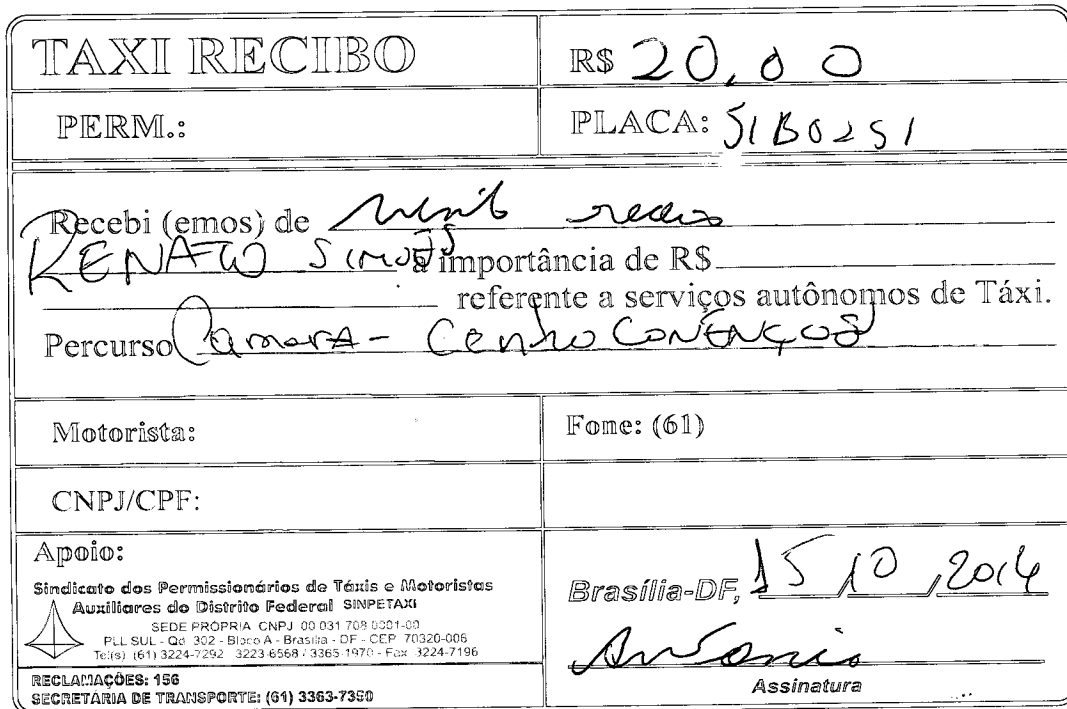 TAXI RECIBO
R$ 20,00
PERM.:
PLACA:
Recebi (emos) de
RENATO SIMOES a importância de R$
referente a serviços autônomos de Táxi.
Percurso Camara - Centro Convenções
Motorista:
Fone: (61)
CNPJ/CPF:
Apoio:
Sindicato dos Permissionários de Táxis e Motoristas
Auxiliares do Distrito Federal SINPETAXI
SEDE PRÓPRIA CNPJ 00 031 708 0001-00
PLL SUL - Qd 302 - Bloco A - Brasília - DF - CEP 70320-006
Tel(s) (61) 3224-7292 3223-6568 / 3365-1970 - Fax 3224-7196
RECLAMAÇÕES: 156
SECRETARIA DE TRANSPORTE: (61) 3363-7350
Brasília-DF, 15 / 10 / 2014
Antonio
Assinatura